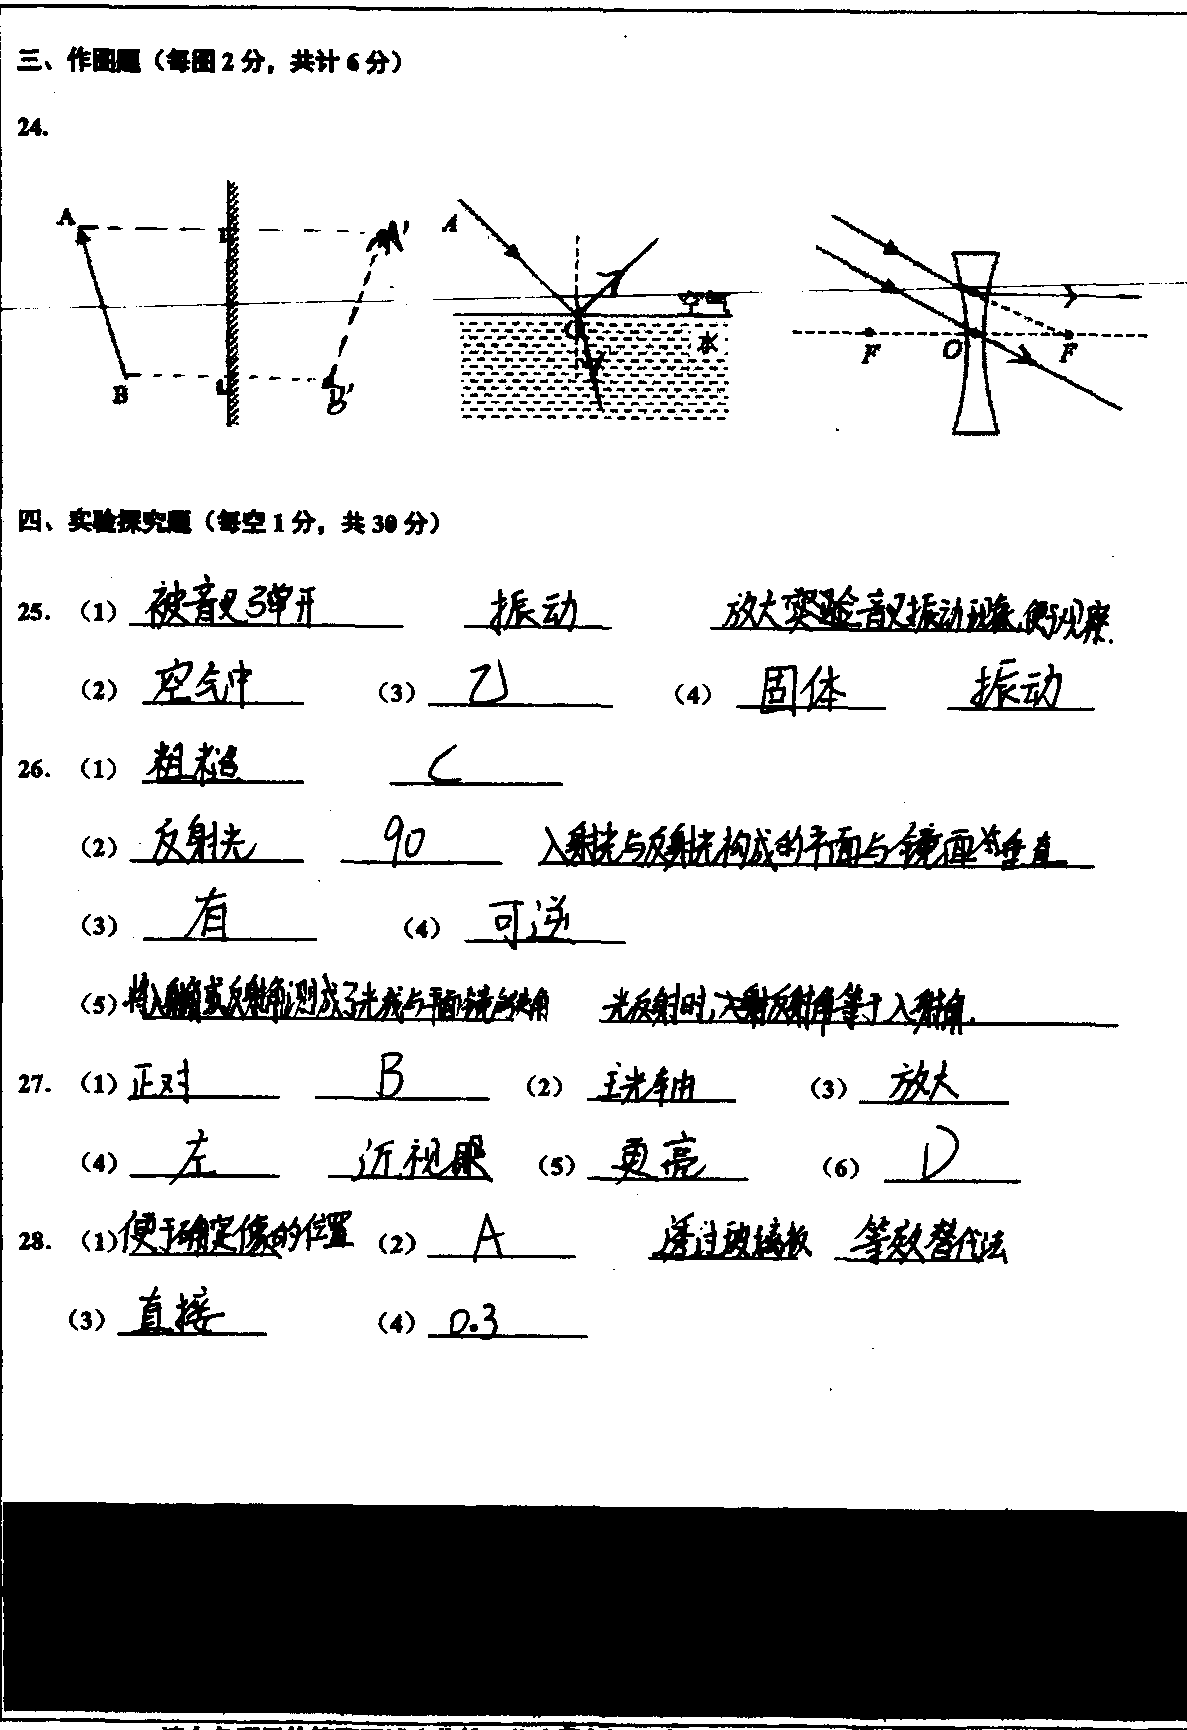 三、作图题（每图 2 分，共计 6 分）
24.
A A' B B'
A O 空气 水
F O F
四、实验探究题（每空 1 分，共 30 分）
25. （1） 被音叉弹开 振动 放大实验音叉振动现象,便于观察.
（2） 空气中 （3） 乙 （4） 固体 振动
26. （1） 粗糙 C
（2） 反射光 90 入射光与反射光构成的平面与镜面垂直
（3） 有 （4） 可逆
（5） 将入射角或反射角测成了光线与平面镜的夹角 光反射时,反射角等于入射角.
27. （1） 正对 B （2） 主光轴 （3） 放大
（4） 左 近视眼 （5） 更亮 （6） D
28. （1） 便于确定像的位置 （2） A 透过玻璃板 等效替代法
（3） 直接 （4） 0.3